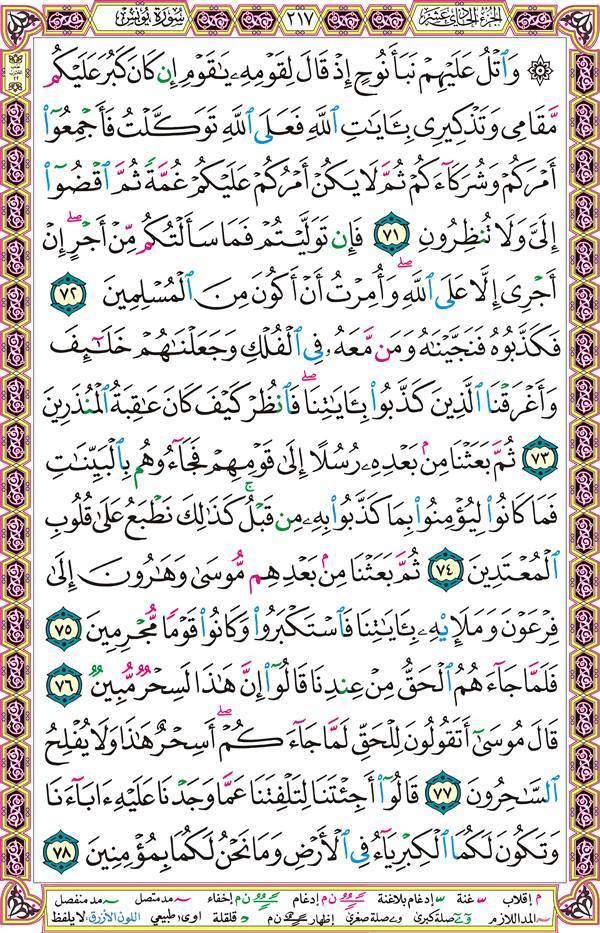 سورة يونس ٢١٧ الجزء الحادي عشر
۞ وَٱتْلُ عَلَيْهِمْ نَبَأَ نُوحٍ إِذْ قَالَ لِقَوْمِهِۦ يَٰقَوْمِ إِن كَانَ كَبُرَ عَلَيْكُم
مَّقَامِى وَتَذْكِيرِى بِـَٔايَٰتِ ٱللَّهِ فَعَلَى ٱللَّهِ تَوَكَّلْتُ فَأَجْمِعُوٓا۟
أَمْرَكُمْ وَشُرَكَآءَكُمْ ثُمَّ لَا يَكُنْ أَمْرُكُمْ عَلَيْكُمْ غُمَّةً ثُمَّ ٱقْضُوٓا۟
إِلَىَّ وَلَا تُنظِرُونِ ٧١ فَإِن تَوَلَّيْتُمْ فَمَا سَأَلْتُكُم مِّنْ أَجْرٍ ۖ إِنْ
أَجْرِىَ إِلَّا عَلَى ٱللَّهِ ۖ وَأُمِرْتُ أَنْ أَكُونَ مِنَ ٱلْمُسْلِمِينَ ٧٢
فَكَذَّبُوهُ فَنَجَّيْنَٰهُ وَمَن مَّعَهُۥ فِى ٱلْفُلْكِ وَجَعَلْنَٰهُمْ خَلَٰٓئِفَ
وَأَغْرَقْنَا ٱلَّذِينَ كَذَّبُوا۟ بِـَٔايَٰتِنَا ۖ فَٱنظُرْ كَيْفَ كَانَ عَٰقِبَةُ ٱلْمُنذَرِينَ
٧٣ ثُمَّ بَعَثْنَا مِنۢ بَعْدِهِۦ رُسُلًا إِلَىٰ قَوْمِهِمْ فَجَآءُوهُم بِٱلْبَيِّنَٰتِ
فَمَا كَانُوا۟ لِيُؤْمِنُوا۟ بِمَا كَذَّبُوا۟ بِهِۦ مِن قَبْلُ ۚ كَذَٰلِكَ نَطْبَعُ عَلَىٰ قُلُوبِ
ٱلْمُعْتَدِينَ ٧٤ ثُمَّ بَعَثْنَا مِنۢ بَعْدِهِم مُّوسَىٰ وَهَٰرُونَ إِلَىٰ
فِرْعَوْنَ وَمَلَإِي۟هِۦ بِـَٔايَٰتِنَا فَٱسْتَكْبَرُوا۟ وَكَانُوا۟ قَوْمًا مُّجْرِمِينَ ٧٥
فَلَمَّا جَآءَهُمُ ٱلْحَقُّ مِنْ عِندِنَا قَالُوٓا۟ إِنَّ هَٰذَا لَسِحْرٌ مُّبِينٌ ٧٦
قَالَ مُوسَىٰٓ أَتَقُولُونَ لِلْحَقِّ لَمَّا جَآءَكُمْ ۖ أَسِحْرٌ هَٰذَا وَلَا يُفْلِحُ
ٱلسَّٰحِرُونَ ٧٧ قَالُوٓا۟ أَجِئْتَنَا لِتَلْفِتَنَا عَمَّا وَجَدْنَا عَلَيْهِ ءَابَآءَنَا
وَتَكُونَ لَكُمَا ٱلْكِبْرِيَآءُ فِى ٱلْأَرْضِ وَمَا نَحْنُ لَكُمَا بِمُؤْمِنِينَ ٧٨
م إقلاب غنة إدغام بلاغنة ن م إدغام ن م إخفاء مد متصل مد منفصل
المد اللازم صلة كبرى صلة صغرى إظهار ن م قلقلة اوى طبيعي اللون الأزرق لا يلفظ